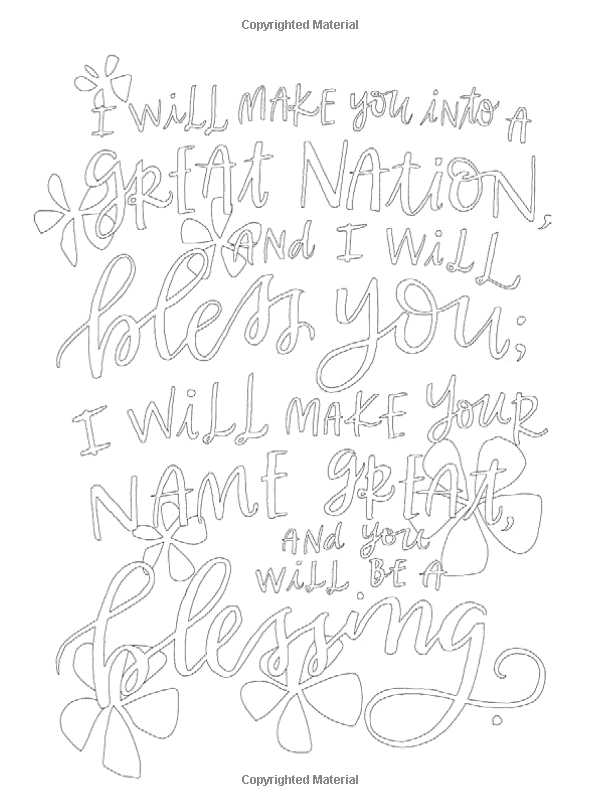 Copyrighted Material
I WiLL MAKE you into A
gREAt NAtiON,
ANd I WiLL
bless you;
I WiLL MAKE YOUR
NAME gREAt,
ANd you
WiLL BE A
blessing.
Copyrighted Material